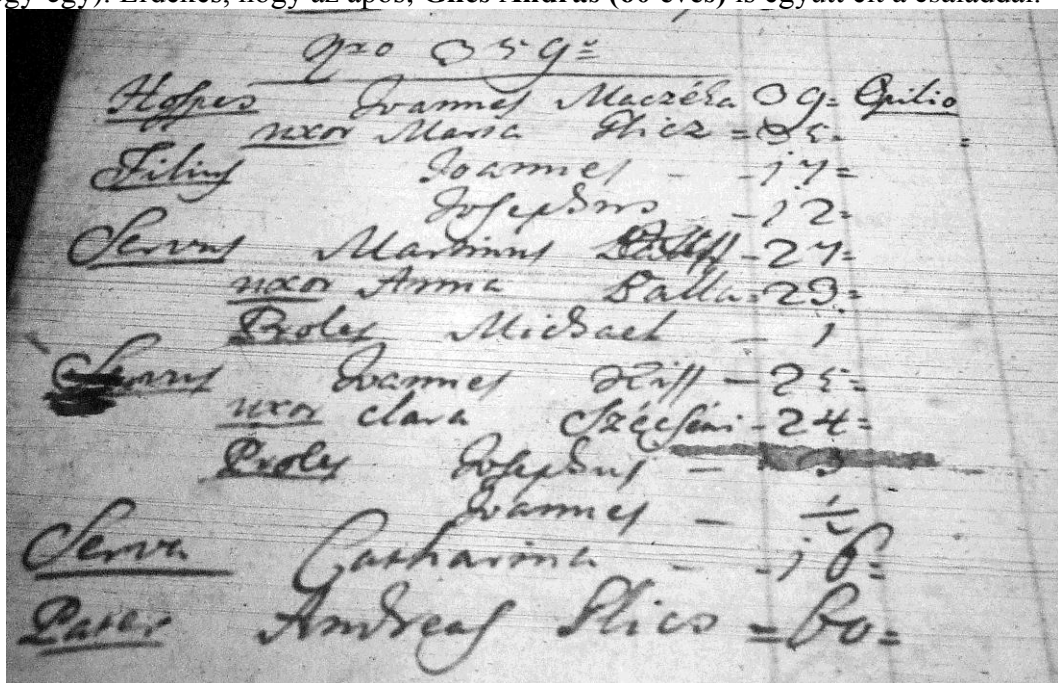 egy-egy). Érdekes, hogy az após, Glies András (60 éves) is együtt élt a családdal.
Nro 359=
Hospes Joannes Maczéka 39= Opilio
uxor Maria Glicz = 35=
Filius Joannes - - 17=
Josephus - 12=
Servus Martinus - 27=
uxor Anna Balla = 23=
Proles Michael - 1
Servus Joannes Kiss - 25=
uxor clara Szécséni - 24=
Proles Josephus - 3
Joannes - 1/2
Serva Catharina - - 16=
Pater Andreas Glics = 60=